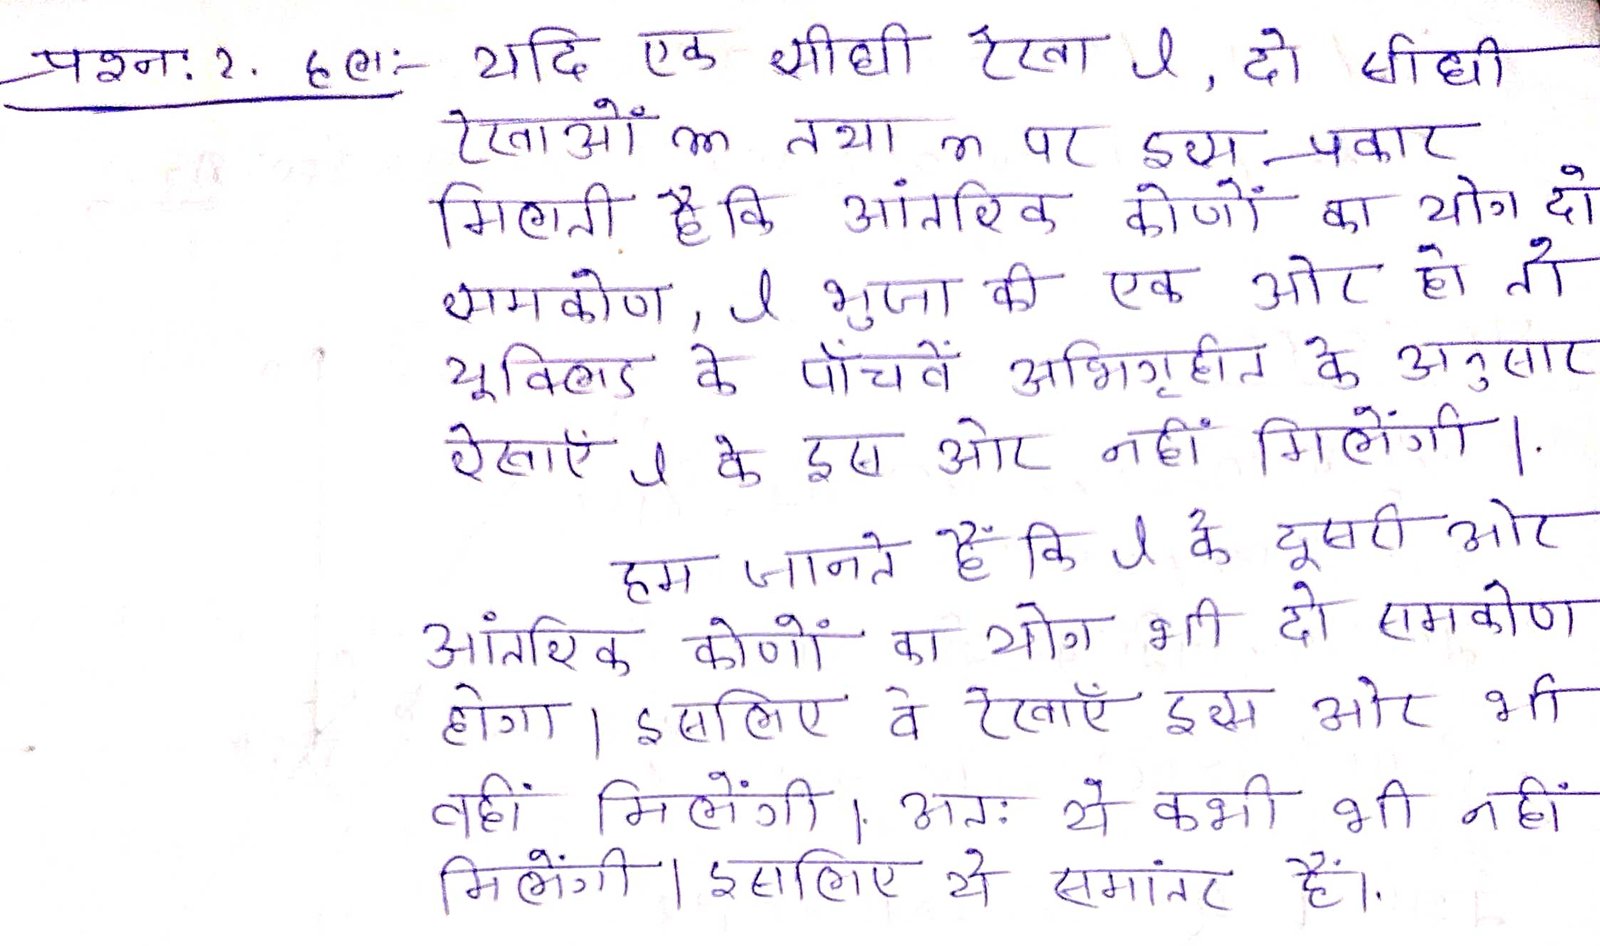 प्रश्न: 2. हल:- यदि एक सीधी रेखा l, दो सीधी
रेखाओं m तथा n पर इस प्रकार
मिलती है कि आंतरिक कोणों का योग दो
समकोण, l भुजा की एक ओर हो तो
यूक्लिड के पाँचवें अभिगृहीत के अनुसार
रेखाएँ l के इस ओर नहीं मिलेंगी।
हम जानते हैं कि l के दूसरी ओर
आंतरिक कोणों का योग भी दो समकोण
होगा। इसलिए वे रेखाएँ इस ओर भी
नहीं मिलेंगी। अतः ये कभी भी नहीं
मिलेंगी। इसलिए ये समांतर हैं।